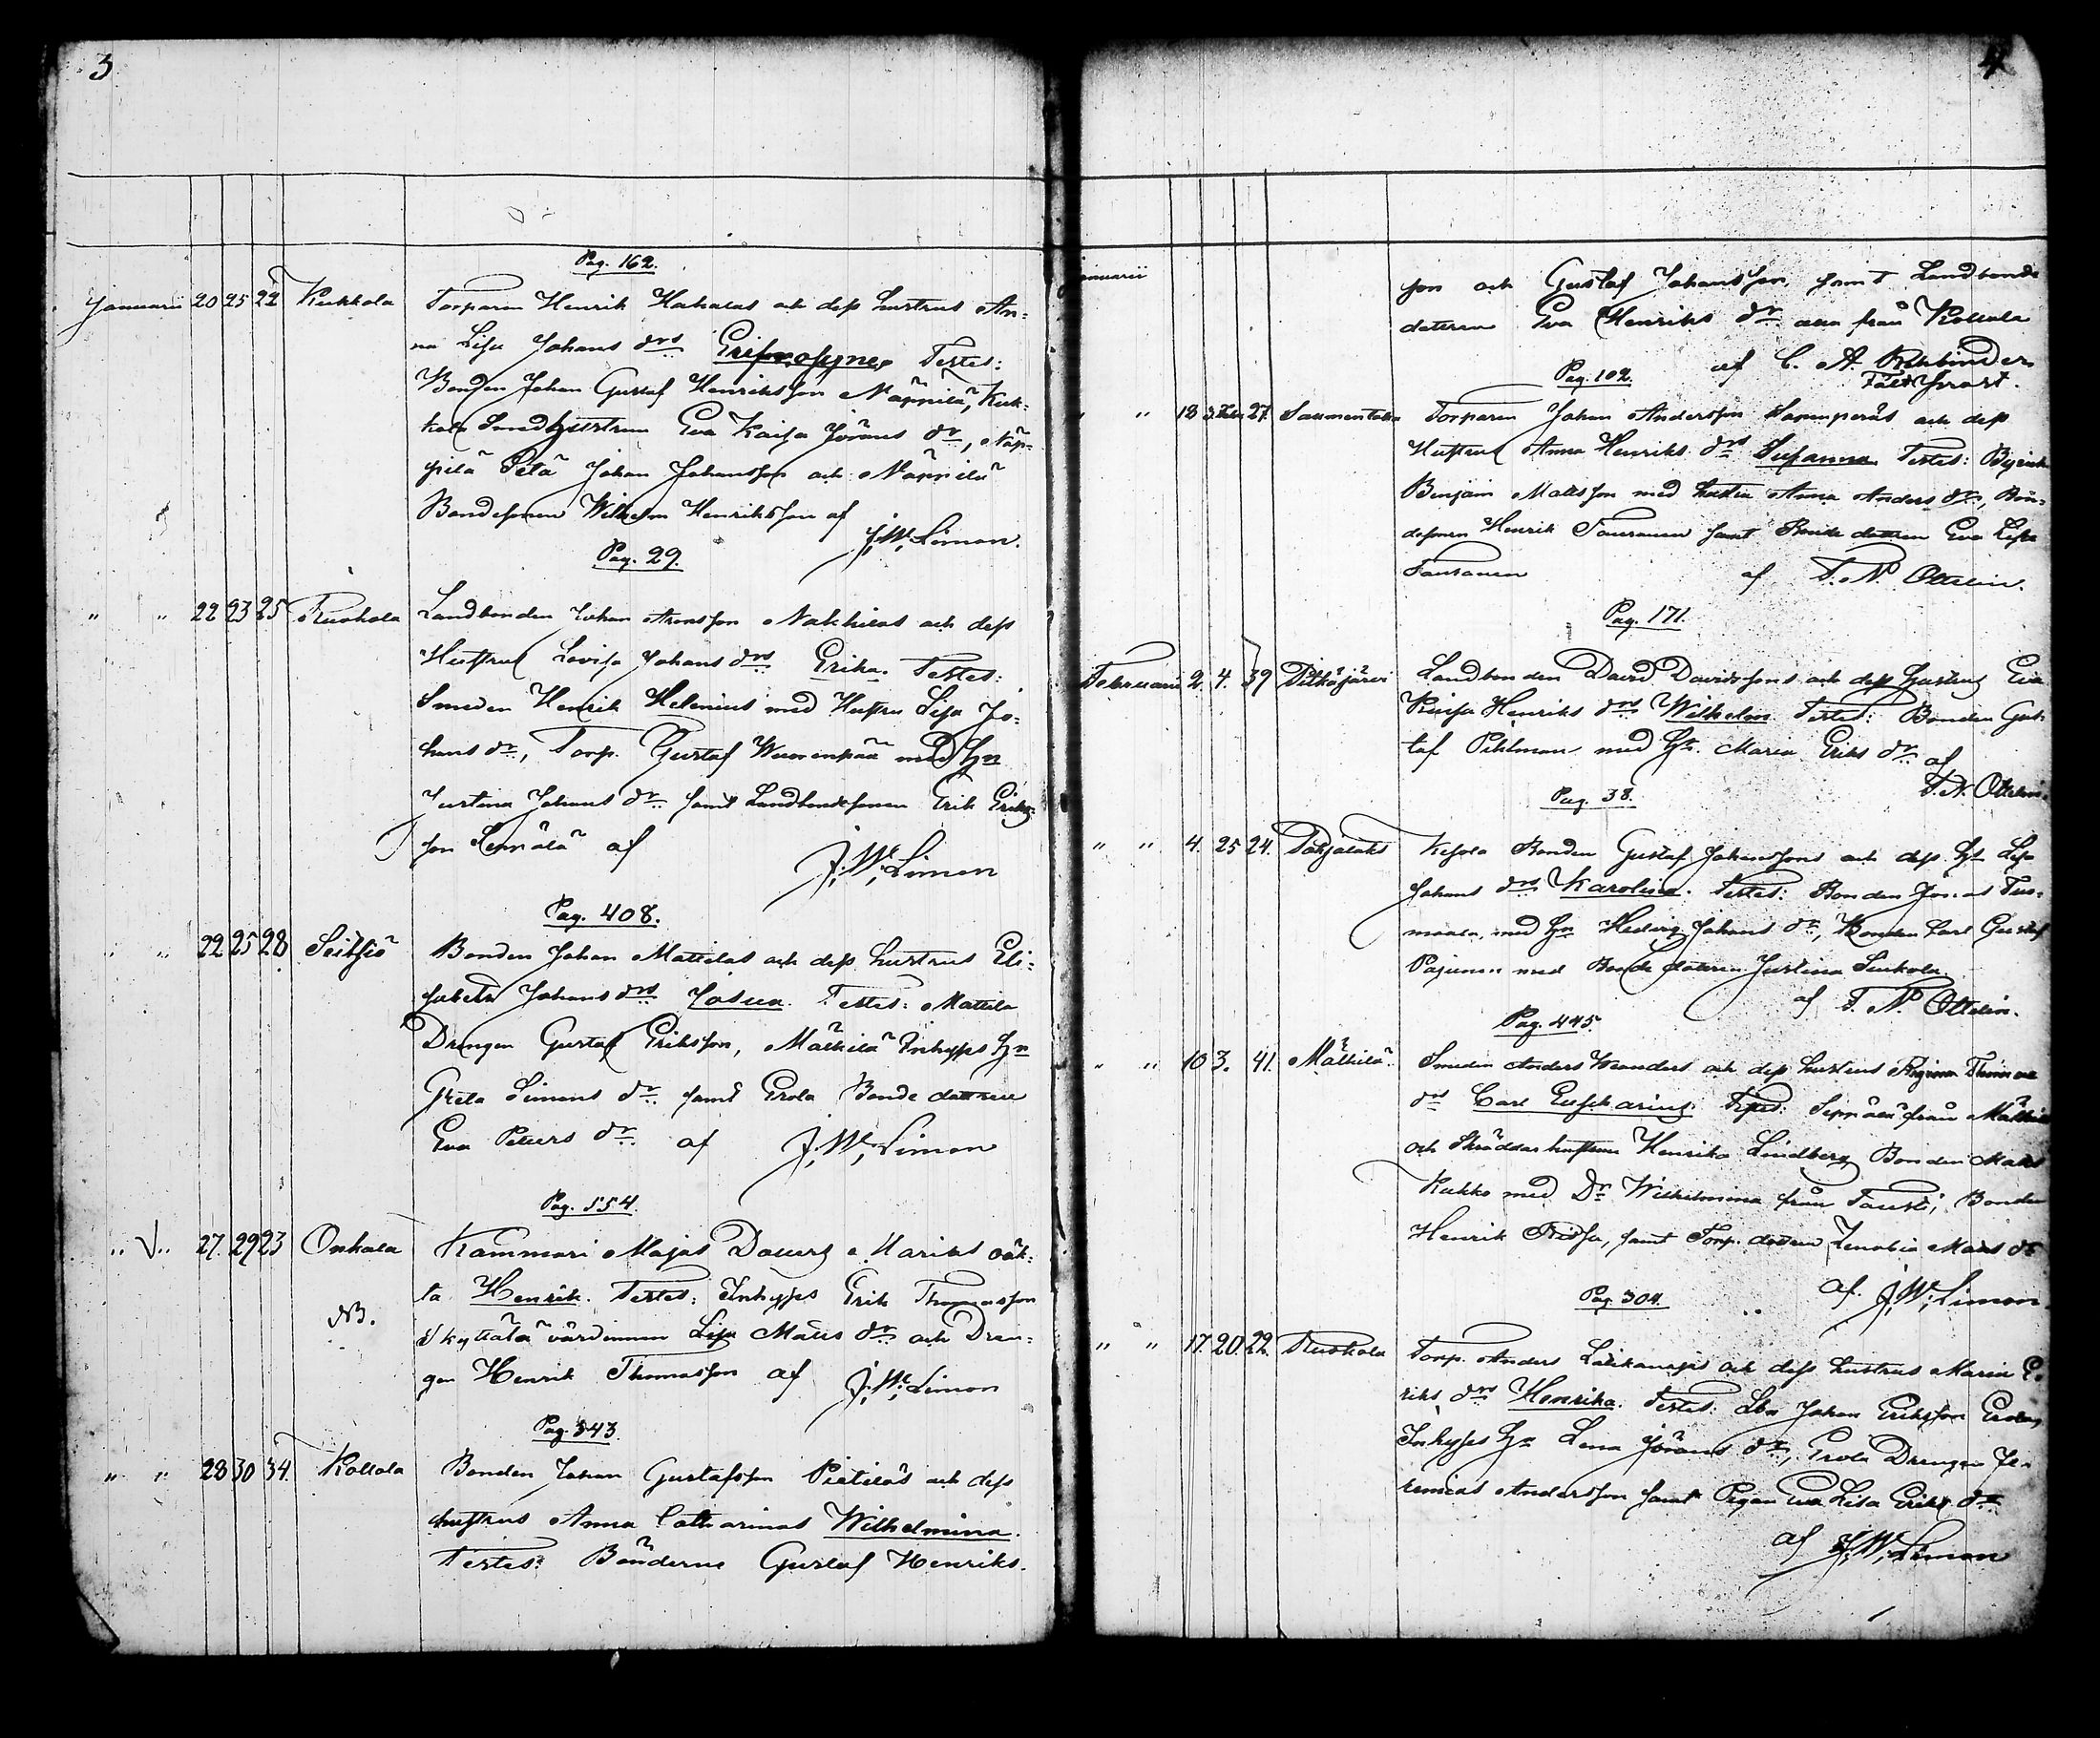 3
Pag. 162.
Januarii 20 25 22 Kukkola Torparen Henrik Hakalas och dess hustrus An-
na Lisa Johans drs Testes:
Bonden Johan Gustaf Henriksson Näppilä, Kuk-
kola Smedhustrun Eva Kaisa Jörans dr, Näp-
pilä Johan Johansson och Näppilä
Bondesonen Wilhelm Henriksson af
J. W. Limon.
Pag. 29.
" " 22 23 25 Ruokola Landbonden Johan Aronsson Nakkilas och dess
Hustrus Lovisa Johans drs Erika. Testes:
Smeden Henrik Helenius med Hustru Lisa Jo-
hans dr, Torp. Gustaf Wuorenpää med Hn
Justina Johans dr samt Landbondesonen Erik Eriks-
son af
J. W. Limon
Pag. 408.
" " 22 25 28 Seitsiö Bonden Johan Mattilas och dess hustrus Eli-
sabeth Johans drs Josua. Testes: Mattila
Drengen Gustaf Eriksson, Mälkilä Inhyses Hn
Greta Simons dr. samt Erola Bonde dottren
Eva Petters dr. af J. W. Limon
Pag. 554.
" V " 27. 29 23 Onkala Kammari Majas Dotters Marias oäk-
ta Henrik. Testes: Inhyses Erik Thomasson
NB.
Skyttälä värdinnan Lisa Matts dr och Dren-
gen Henrik Thomasson af J. W. Limon
Pag. 343.
" " 28 30 34. Kollola Bonden Johan Gustafsson Pietiläs och dess
hustrus Anna Catharinas Wilhelmina.
Testes: Bönderne Gustaf Henriks-
4
Januarii
son och Gustaf Johansson samt Landbonde
dottren Eva Henriks dr alla från Kollola
af C. A. Rehbinder
Pag. 102. Fält
" " 18 27. Torparen Johan Andersson och dess
Hustrus Anna Henriks drs Susanna Testes:
Benjam Mattsson med hustru Anna Anders dr, Bon-
desonen Henrik Tauranen samt Bonde dottren Eva Lisa
Tauranen af F. N. Ottelin.
Pag. 171.
Februarii 2. 4. 39 Pitkäjärvi Landbonden David Davidssons och dess Hustrus Eva
Kaisa Henriks drs Wilhelm Testes: Bonden Gus-
taf Pihlman med Hn. Maria Eriks dr. af
F. N. Ottelin.
Pag. 38.
" " 4. 25 24. Pahjalaks Bonden Gustaf Johanssons och dess Hs Lisa
Johans drs Karolina. Testes: Bonden Jonas Tuo-
maala, med Hn Hedvig Johans dr, Bonden Carl Gustaf
Pajunen med Bonde dottren Justina Suokola.
af F. N. Ottelin.
Pag. 445.
" " 10 3. 41. Mälkilä Smeden Anders och dess hustrus Regina
drs Carl Testes: Seppälä från Mälkilä
och Skräddar hustrun Henrika Lindberg Bonden Matts
Kukko med Dr Wilhelmina från Bonden
Henrik samt Torp. dottren Zenobia Matts dr
af. J. W. Limon.
Pag. 304.
" " 17. 20. 22. Ruokola Torp. Anders och dess hustrus Maria E-
riks drs Henrika. Testes: Lbn Johan Eriksson Erola,
Inhyses Hn Lena Jörans dr, Erola Drengen Je-
remias Andersson samt Pigan Eva Lisa Eriks dr
af J. W. Limon